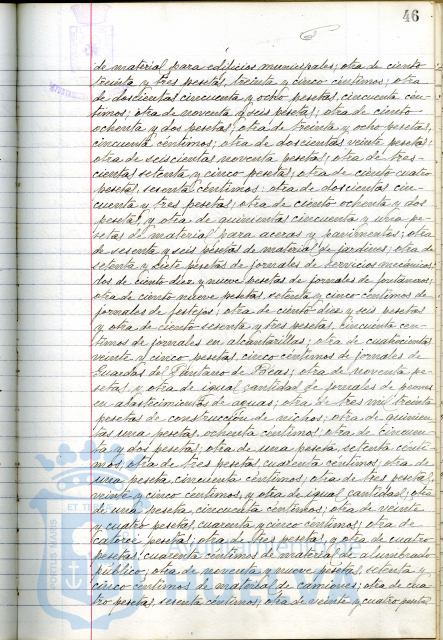 46
de material para edificios municipales; otra de ciento
treinta y tres pesetas, treinta y cinco céntimos; otra
de doscientas cincuenta y ocho pesetas, cincuenta cén-
timos; otra de noventa y seis pesetas; otra de ciento
ochenta y dos pesetas; otra de treinta y ocho pesetas,
cincuenta céntimos; otra de doscientas veinte pesetas;
otra de seiscientas noventa pesetas; otra de tres-
cientas setenta y cinco pesetas; otra de ciento cuatro
pesetas, sesenta céntimos; otra de doscientas cin-
cuenta y tres pesetas; otra de ciento ochenta y dos
pesetas y otra de quinientas cincuenta y una pe-
setas de material para aceras y pavimentos; otra
de sesenta y seis pesetas de material de jardines; otra de
setenta y siete pesetas de jornales de servicios mecánicos;
dos de ciento diez y nueve pesetas de jornales de fontaneros;
otra de ciento nueve pesetas, setenta y cinco céntimos de
jornales de festejos; otra de ciento diez y seis pesetas
y otra de ciento sesenta y tres pesetas, cincuenta cen-
timos de jornales en alcantarillas; otra de cuatrocientas
veinte y cinco pesetas, cinco céntimos de jornales de
Guardas del Pantano de Beas; otra de noventa pe-
setas y otra de igual cantidad de jornales de peones
en abastecimientos de aguas; otra de tres mil treinta
pesetas de construcción de nichos; otra de quinien-
tas una pesetas, ochenta céntimos; otra de cincuen-
ta y dos pesetas; otra de una peseta, setenta cénti-
mos; otra de tres pesetas, cuarenta céntimos; otra de
una peseta, cincuenta céntimos; otra de tres pesetas,
veinte y cinco céntimos, y otra de igual cantidad; otra
de una peseta, cincuenta céntimos; otra de veinte
y cuatro pesetas, cuarenta y cinco céntimos; otra de
catorce pesetas; otra de tres pesetas, y otra de cuatro
pesetas, cuarenta céntimos de material de alumbrado
público; otra de noventa y nueve pesetas, setenta y
cinco céntimos de material de camiones; otra de cua-
tro pesetas, sesenta céntimos; otra de veinte y cuatro pesetas
PORTUS MARIS
ET TERRAE
HUELVA